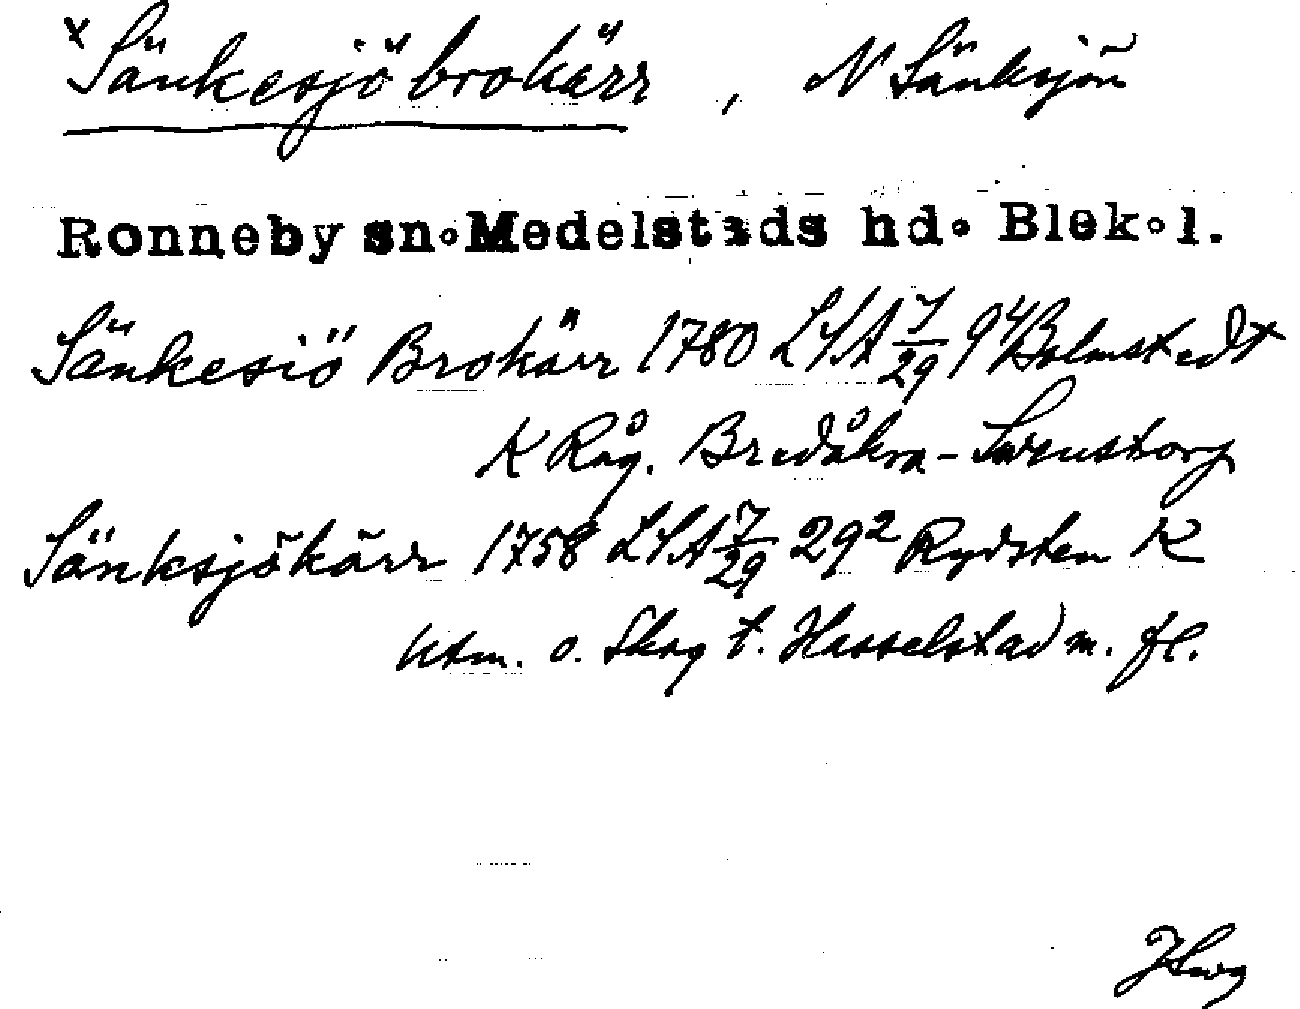 x Sänkesjöbrokärr, N Sänksjön
Ronneby sn. Medelstads hd. Blek. l.
Sänkesiö Brokärr 1780 LSA 7/29 9⁴ Bolmstedt
K Råg. Bredåkra - Svenstorp
Sänksjökärr 1758 LSA 7/29 29² Rydsten K
Utm. o. Skog t. Hasselstad m. fl.